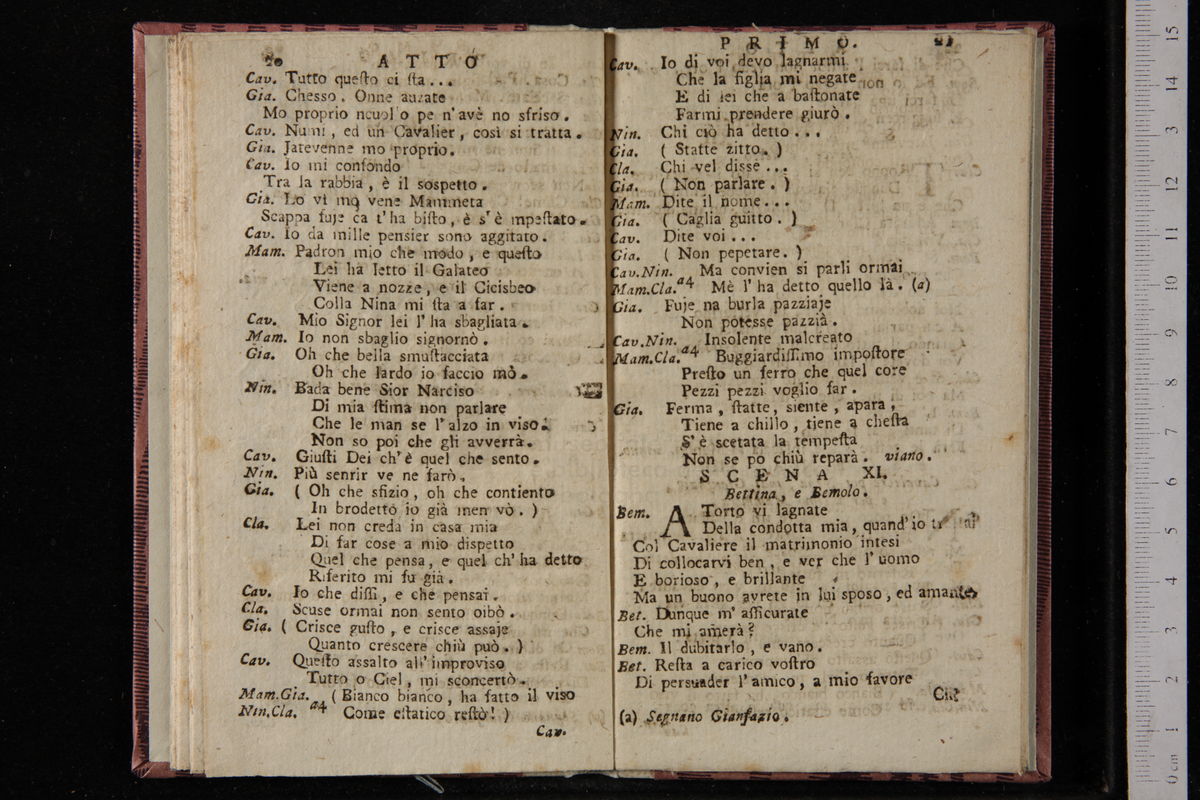 20 ATTO
Cav. Tutto queſto ci ſta...
Gia. Cheſſo. Onne auzate
Mo proprio ncuollo pe n'avè no sfriso.
Cav. Numi, ed un Cavalier, così si tratta.
Gia. Jatevenne mo proprio.
Cav. Io mi confondo
Tra la rabbia, è il sospetto.
Gia. Lo vì mo vene Mammeta
Scappa fuje ca t'ha biſto, è s'è mpeſtato.
Cav. Io da mille pensier sono aggitato.
Mam. Padron mio che modo, e queſto
Lei ha letto il Galateo
Viene a nozze, e il Cicisbeo
Colla Nina mi ſta a far.
Cav. Mio Signor lei l'ha sbagliata.
Mam. Io non sbaglio signornò.
Gia. Oh che bella smuſtacciata
Oh che lardo io faccio mò.
Nin. Bada bene Sior Narciso
Di mia ſtima non parlare
Che le man se l'alzo in viso.
Non so poi che gli avverrà.
Cav. Giuſti Dei ch'è quel che sento.
Nin. Più senrir ve ne farò.
Gia. ( Oh che sfizio, oh che contiento
In brodetto io già men vò. )
Cla. Lei non creda in casa mia
Di far cose a mio dispetto
Quel che pensa, e quel ch'ha detto
Riferito mi fu già.
Cav. Io che diſſi, e che pensai.
Cla. Scuse ormai non sento oibò.
Gia. ( Crisce guſto, e crisce assaje
Quanto crescere chiù può. )
Cav. Queſto assalto all'improviso
Tutto o Ciel, mi sconcertò.
Mam.Gia. a4 ( Bianco bianco, ha fatto il viso
Nin.Cla. Come eſtatico reſtò! )
Cav.
PRIMO. 21
Cav. Io di voi devo lagnarmi
Che la figlia mi negate
E di lei che a baſtonate
Farmi prendere giurò.
Nin. Chi ciò ha detto...
Gia. ( Statte zitto. )
Cla. Chi vel disse...
Gia. ( Non parlare. )
Mam. Dite il nome...
Gia. ( Caglia guitto. )
Cav. Dite voi...
Gia. ( Non pepetare. )
Cav.Nin. Ma convien si parli ormai
Mam.Cla. a4 Mè l'ha detto quello là. (a)
Gia. Fuje na burla pazziaje
Non potesse pazzià.
Cav.Nin. Insolente malcreato
Mam.Cla. a4 Buggiardiſſimo impoſtore
Preſto un ferro che quel core
Pezzi pezzi voglio far.
Gia. Ferma, ſtatte, siente, apara,
Tiene a chillo, tiene a cheſta
S'è scetata la tempeſta
Non se pò chiù reparà. viano.
SCENA XI.
Bettina, e Bemolo.
Bem. A Torto vi lagnate
Della condotta mia, quand'io
Col Cavaliere il matrimonio intesi
Di collocarvi ben, e ver che l'uomo
E borioso, e brillante
Ma un buono avrete in lui sposo, ed amante
Bet. Dunque m'aſſicurate
Che mi amerà?
Bem. Il dubitarlo, e vano.
Bet. Reſta a carico voſtro
Di persuader l'amico, a mio favore
Che
(a) Segnano Gianfazio.